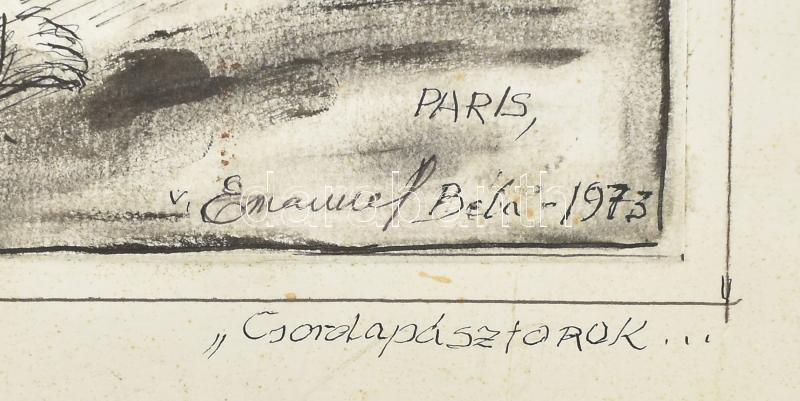 PARIS,
v. Emanuel Béla - 1973
darabanth
„Csordapásztorok...